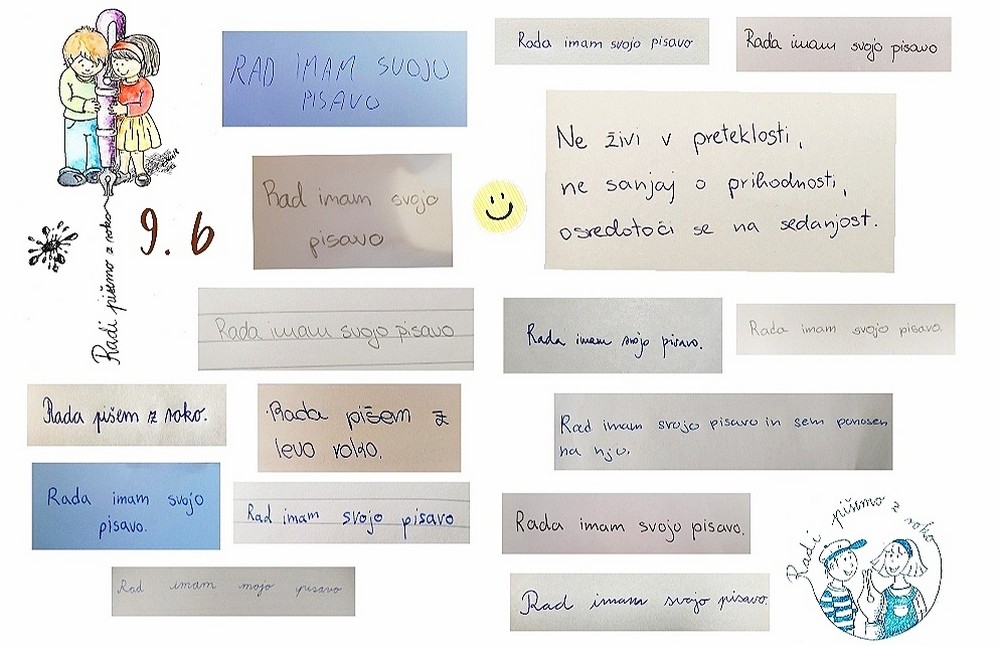 RAD IMAM SVOJO
PISAVO
Rada imam svojo pisavo
Rada imam svojo pisavo
Rad imam svojo
pisavo
Ne živi v preteklosti,
ne sanjaj o prihodnosti,
osredotoči se na sedanjost.
9. b
Radi pišemo z roko
Rada imam svojo pisavo
Rada imam svojo pisavo.
Rada imam svojo pisavo.
Rada pišem z roko.
Rada pišem z
levo roko.
Rad imam svojo pisavo in sem ponosen
na njo.
Rada imam svojo
pisavo.
Rad imam svojo pisavo
Rada imam svojo pisavo.
Radi pišemo z roko
Rad imam mojo pisavo
Rad imam svojo pisavo.